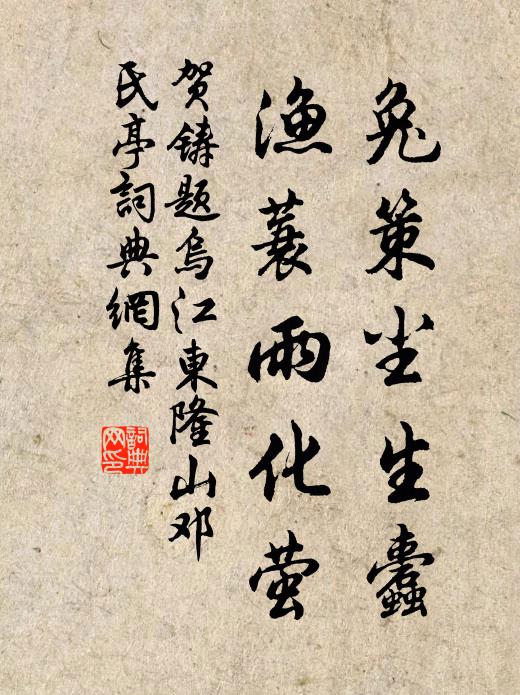 兔策尘生蠹
渔蓑雨化萤
贺铸题乌江东隆山邓
氏亭詞典網集
詞典网印